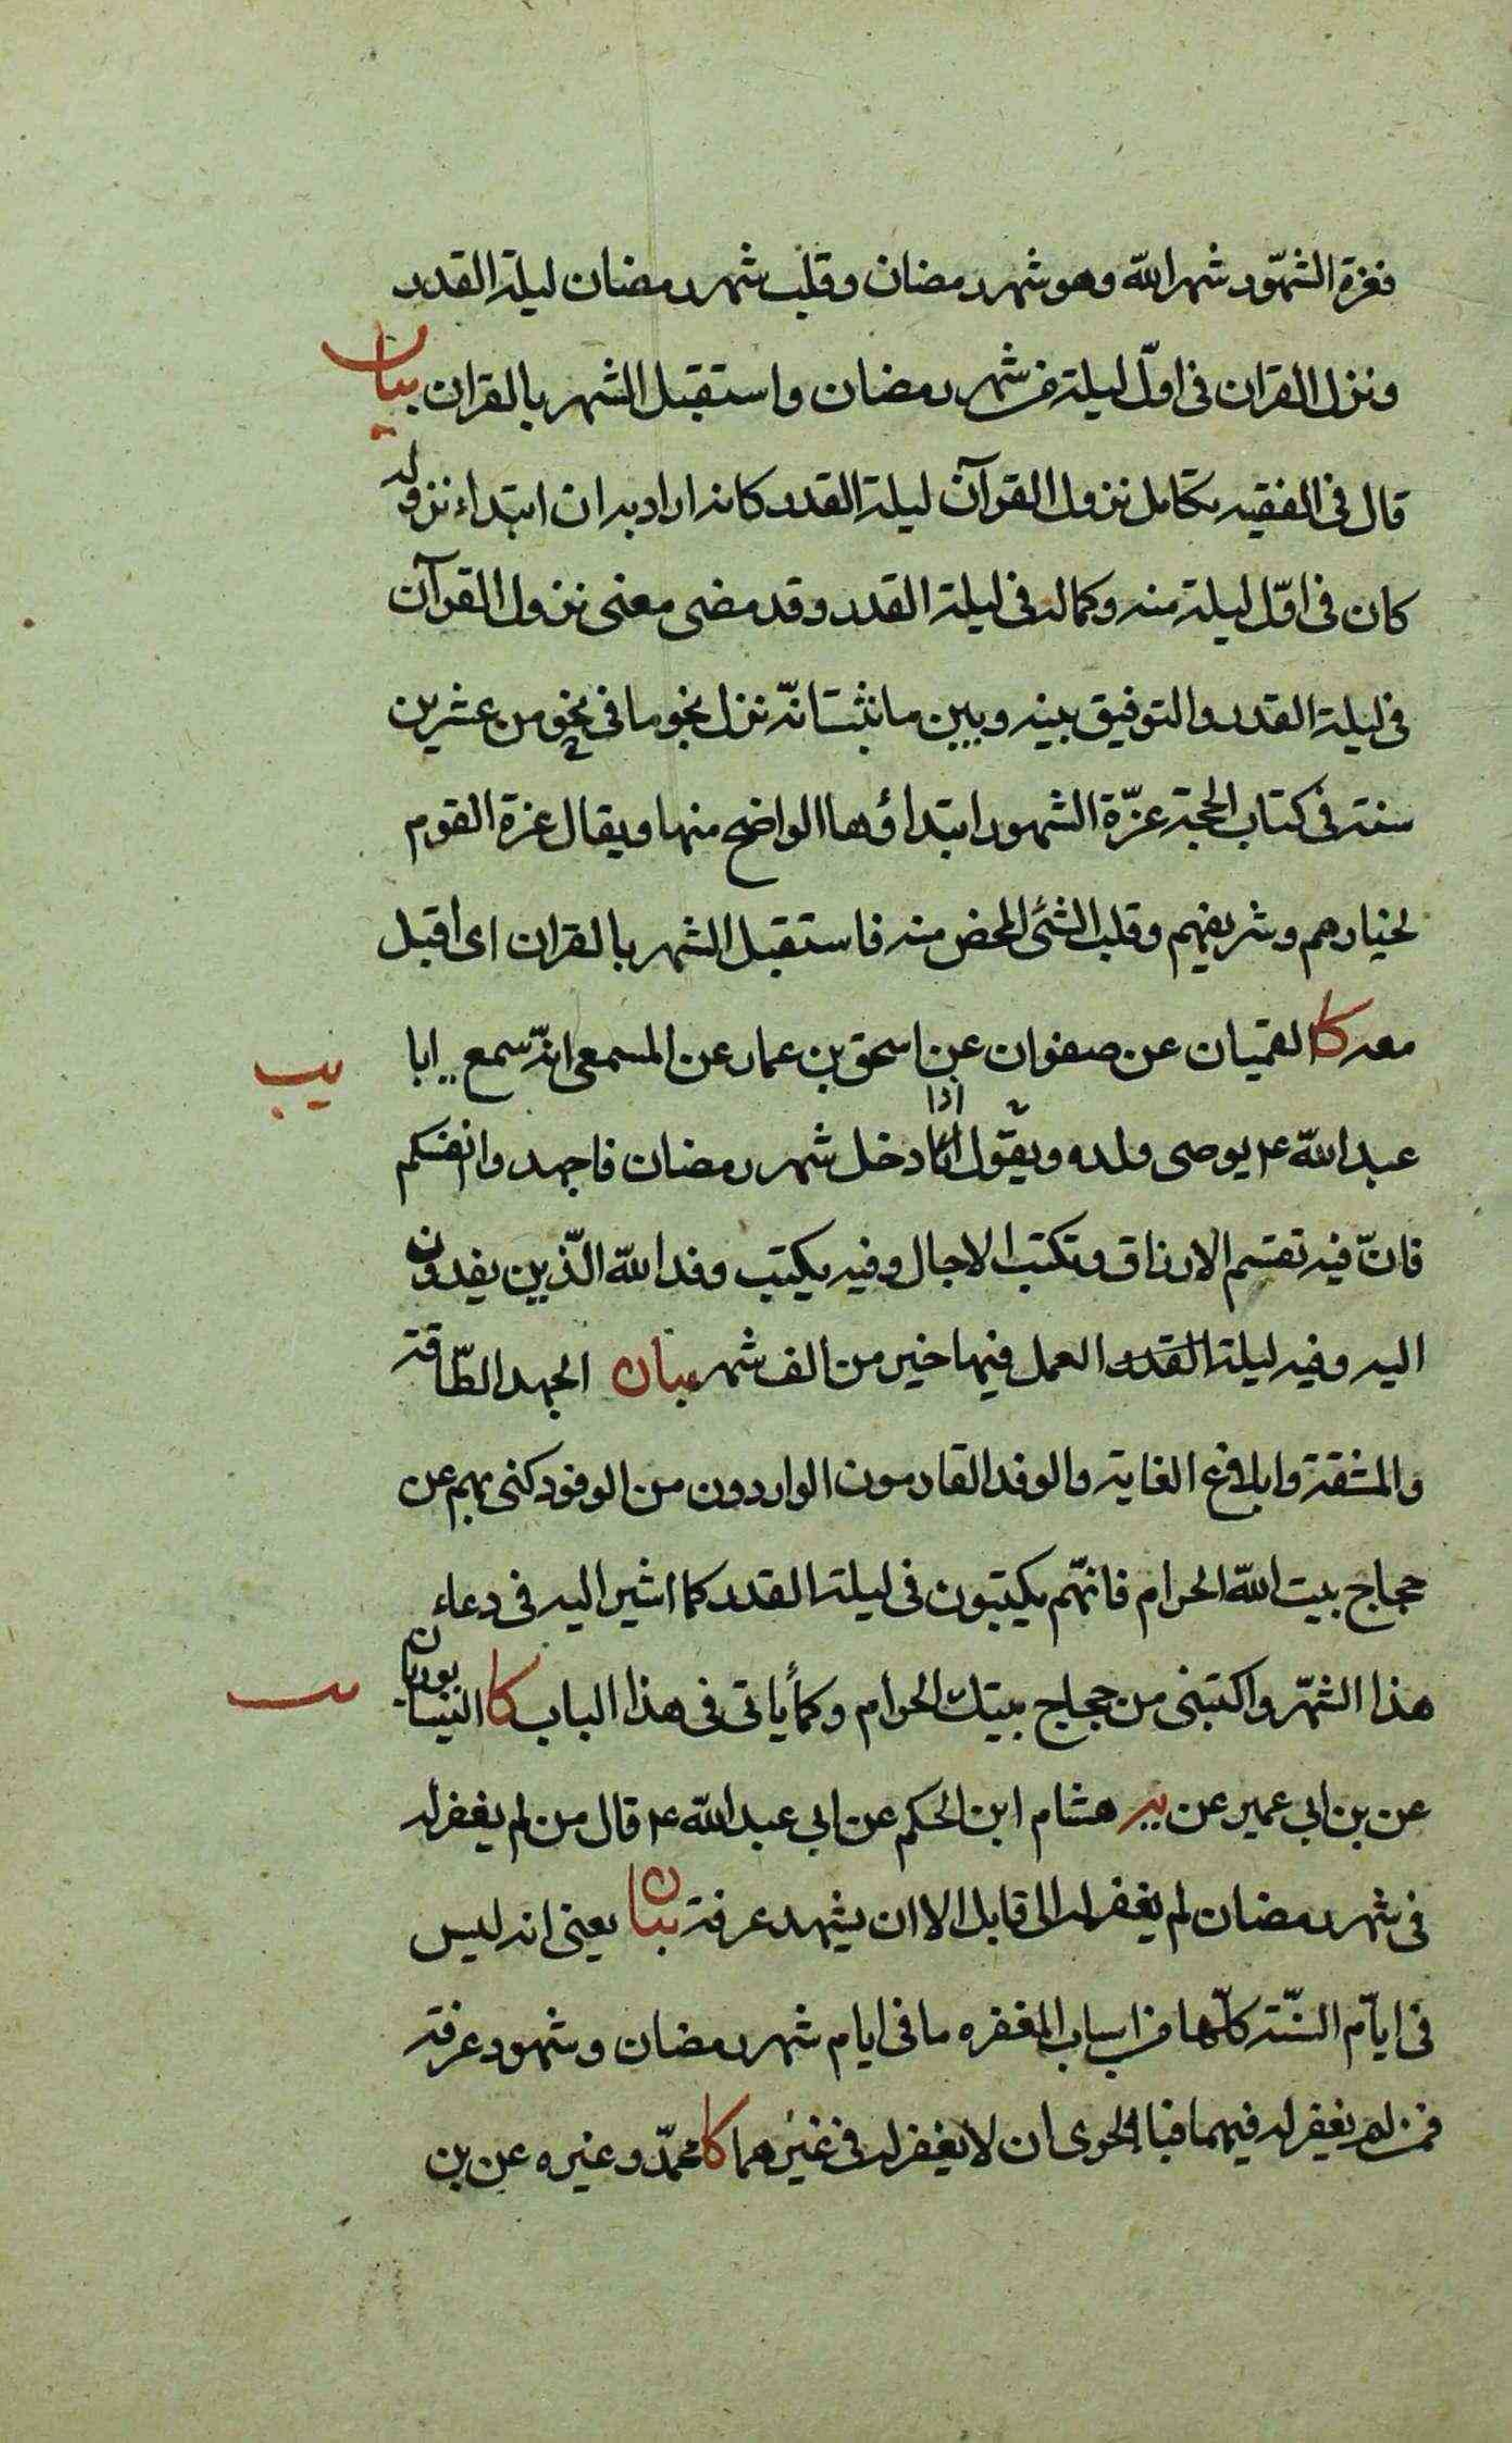 فغرة الشهور شهر الله وهو شهر رمضان وقلب شهر رمضان ليلة القدر
ونزل القران فى اوّل ليلة من شهر رمضان واستقبل الشهر بالقران بيان
قال فى الفقيه تكامل نزول القرآن ليلة القدر كانه اراد به ان ابتداء نزوله
كان فى اوّل ليلة منه وكماله فى ليلة القدر وقد مضى معنى نزول القرآن
فى ليلة القدر والتوفيق بينه وبين ما ثبت انّه نزل نجوما فى نحو من عشرين
سنة فى كتاب الحجة غرّة الشهور ابتداؤها الواضح منها ويقال غرة القوم
لخيارهم وشريفهم وقلب الشئ المحض منه فاستقبل الشهر بالقران اى اقبل
معه كا القميان عن صفوان عن اسحق بن عمار عن المسمعى انّه سمع ابا
يب
اذا
عبد الله ع يوصى ولده ويقول اذا دخل شهر رمضان فاجهدوا انفسكم
فانّ فيه تقسم الارزاق وتكتب الاجال وفيه يكتب وفد الله الّذين يفدون
اليه وفيه ليلة القدر العمل فيها خير من الف شهر بيان الجهد الطّاقة
والمشقة وابلاغ الغاية والوفد القادمون الواردون من الوفود كنى بهم عن
حجاج بيت الله الحرام فانّهم يكتبون فى ليلة القدر كما اشير اليه فى دعاء
هذا الشهر واكتبنى من حجاج بيتك الحرام وكما ياتى فى هذا الباب كا النيسابوريان
عن بن ابي عمير عن يه هشام ابن الحكم عن ابي عبد الله ع قال من لم يغفر له
فى شهر رمضان لم يغفر له الى قابل الا ان يشهد عرفة بيان يعنى انه ليس
فى ايّام السّنة كلّها من اسباب المغفره ما فى ايام شهر رمضان وشهود عرفة
فمن لم يغفر له فيهما فبالحرى ان لا يغفر له فى غيرهما كا محمّد وغيره عن بن